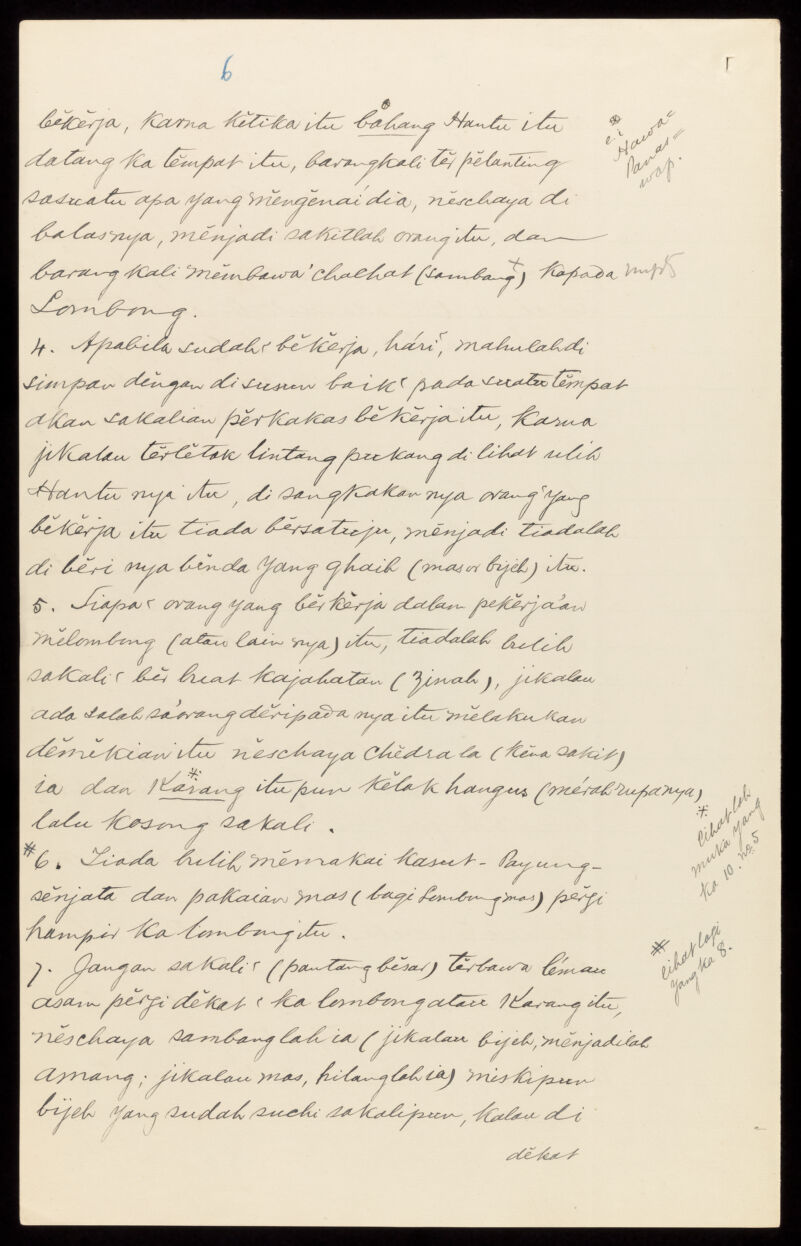 6
běkěrja, karna kětika itu bahang Hantu itu
datang ka těmpat itu, barangkali těr pělanting
sasuatu apa yang měngěnai dia, něschaya di
balasnya, měnjadi sakitlah orang itu, dan
barangkali měmbawa' chalhat (sambang+) kapada
Lombong.
Hawa=
Panas=
wap.
4. Apabila sudah² běkěrja, hári², mahulah di
simpan děngan di susun baik² pada suatu těmpat
akan sakalian pěrkakas běkěrja itu, karna
jikalau těrlětak lintang pukang di lihat ulih
Hantu nya itu, di sangkakan nya orang² yang
běkěrja itu tiada běrsatuju, měnjadi tiadalah
di běri nya běnda yang ghaib (mas or bijeh) itu.
5. Siapa² orang yang běrkěrja dalam pekěrja'an
mělombong (atau lain nya) itu, tiadalah bulih
sakali² běr buat kajahatan (Zinah), jikalau
ada salah sa'orang děripada nya itu mělakukan
děměkian itu něschaya chědra la (kěna sakit)
ia dan Karang* itu pun kělak hangus (mérah rupanya)
lalu kosong sakali.
* lihat lah
muka yang
ka 10 no. 5
# 6. Tiada bulih měmakai kasut - Payung -
sěnjata dan pakaian mas (bagi Lombong mas) pěrgi
hampir ka lombong itu.
# lihat lagi
yang ka 8.
7. Jangan sakali² (pantang běsar) těrbawa límau
asam pěrgi děkat² ka lombong atau Karang itu,
něschaya sambanglah ia (jikalau bijeh, měnjadilah
amang; jikalau mas, hilanglah ia) miskipun
bijeh yang sudah suchi sakalipun, kalau di
děkat